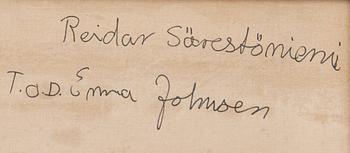 Reidar Särestöniemi
T.O.D. Emma Johnsen